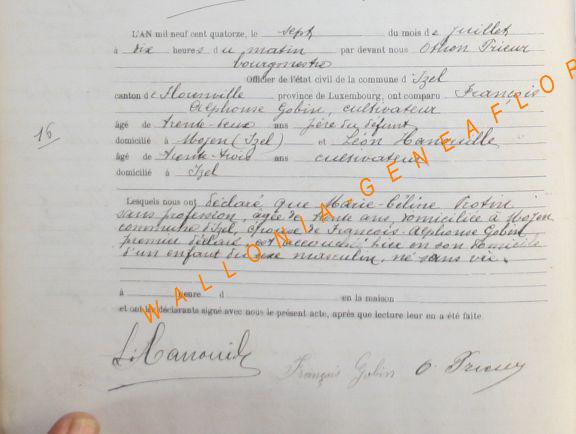 L'AN mil neuf cent quatorze, le sept du mois de juillet
à dix heures du matin par devant nous Othon Prieur
bourgmestre
Officier de l'état civil de la commune d'Izel
canton de Florenville province de Luxembourg, ont comparu François
Alphonse Gobin, cultivateur
16
âgé de trente-deux ans père du défunt
domicilié à Moyen (Izel) et Léon Hanouille
âgé de trente-trois ans cultivateur
domicilié à Izel
Lesquels nous ont déclaré que Marie-Céline
sans profession, agée de trente ans, domiciliée à Moyen
commune d'Izel, épouse de François-Alphonse Gobin
premier déclarant est accouchée hier en son domicile
d'un enfant du sexe masculin, né sans vie.
à heure d en la maison
et ont les déclarants signé avec nous le présent acte, après que lecture leur en a été faite
L. Hanouille François Gobin O. Prieur
WALLONIA GENEAFLOR